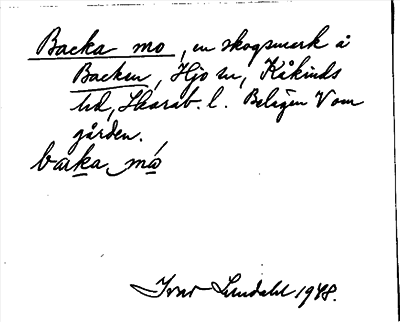 Backa mo, en skogsmark å
Backen, Hjo sn, Kåkinds
hd, Skarab. l. Belägen V om
gården.
backa mo
Ivar Lundahl 1948.